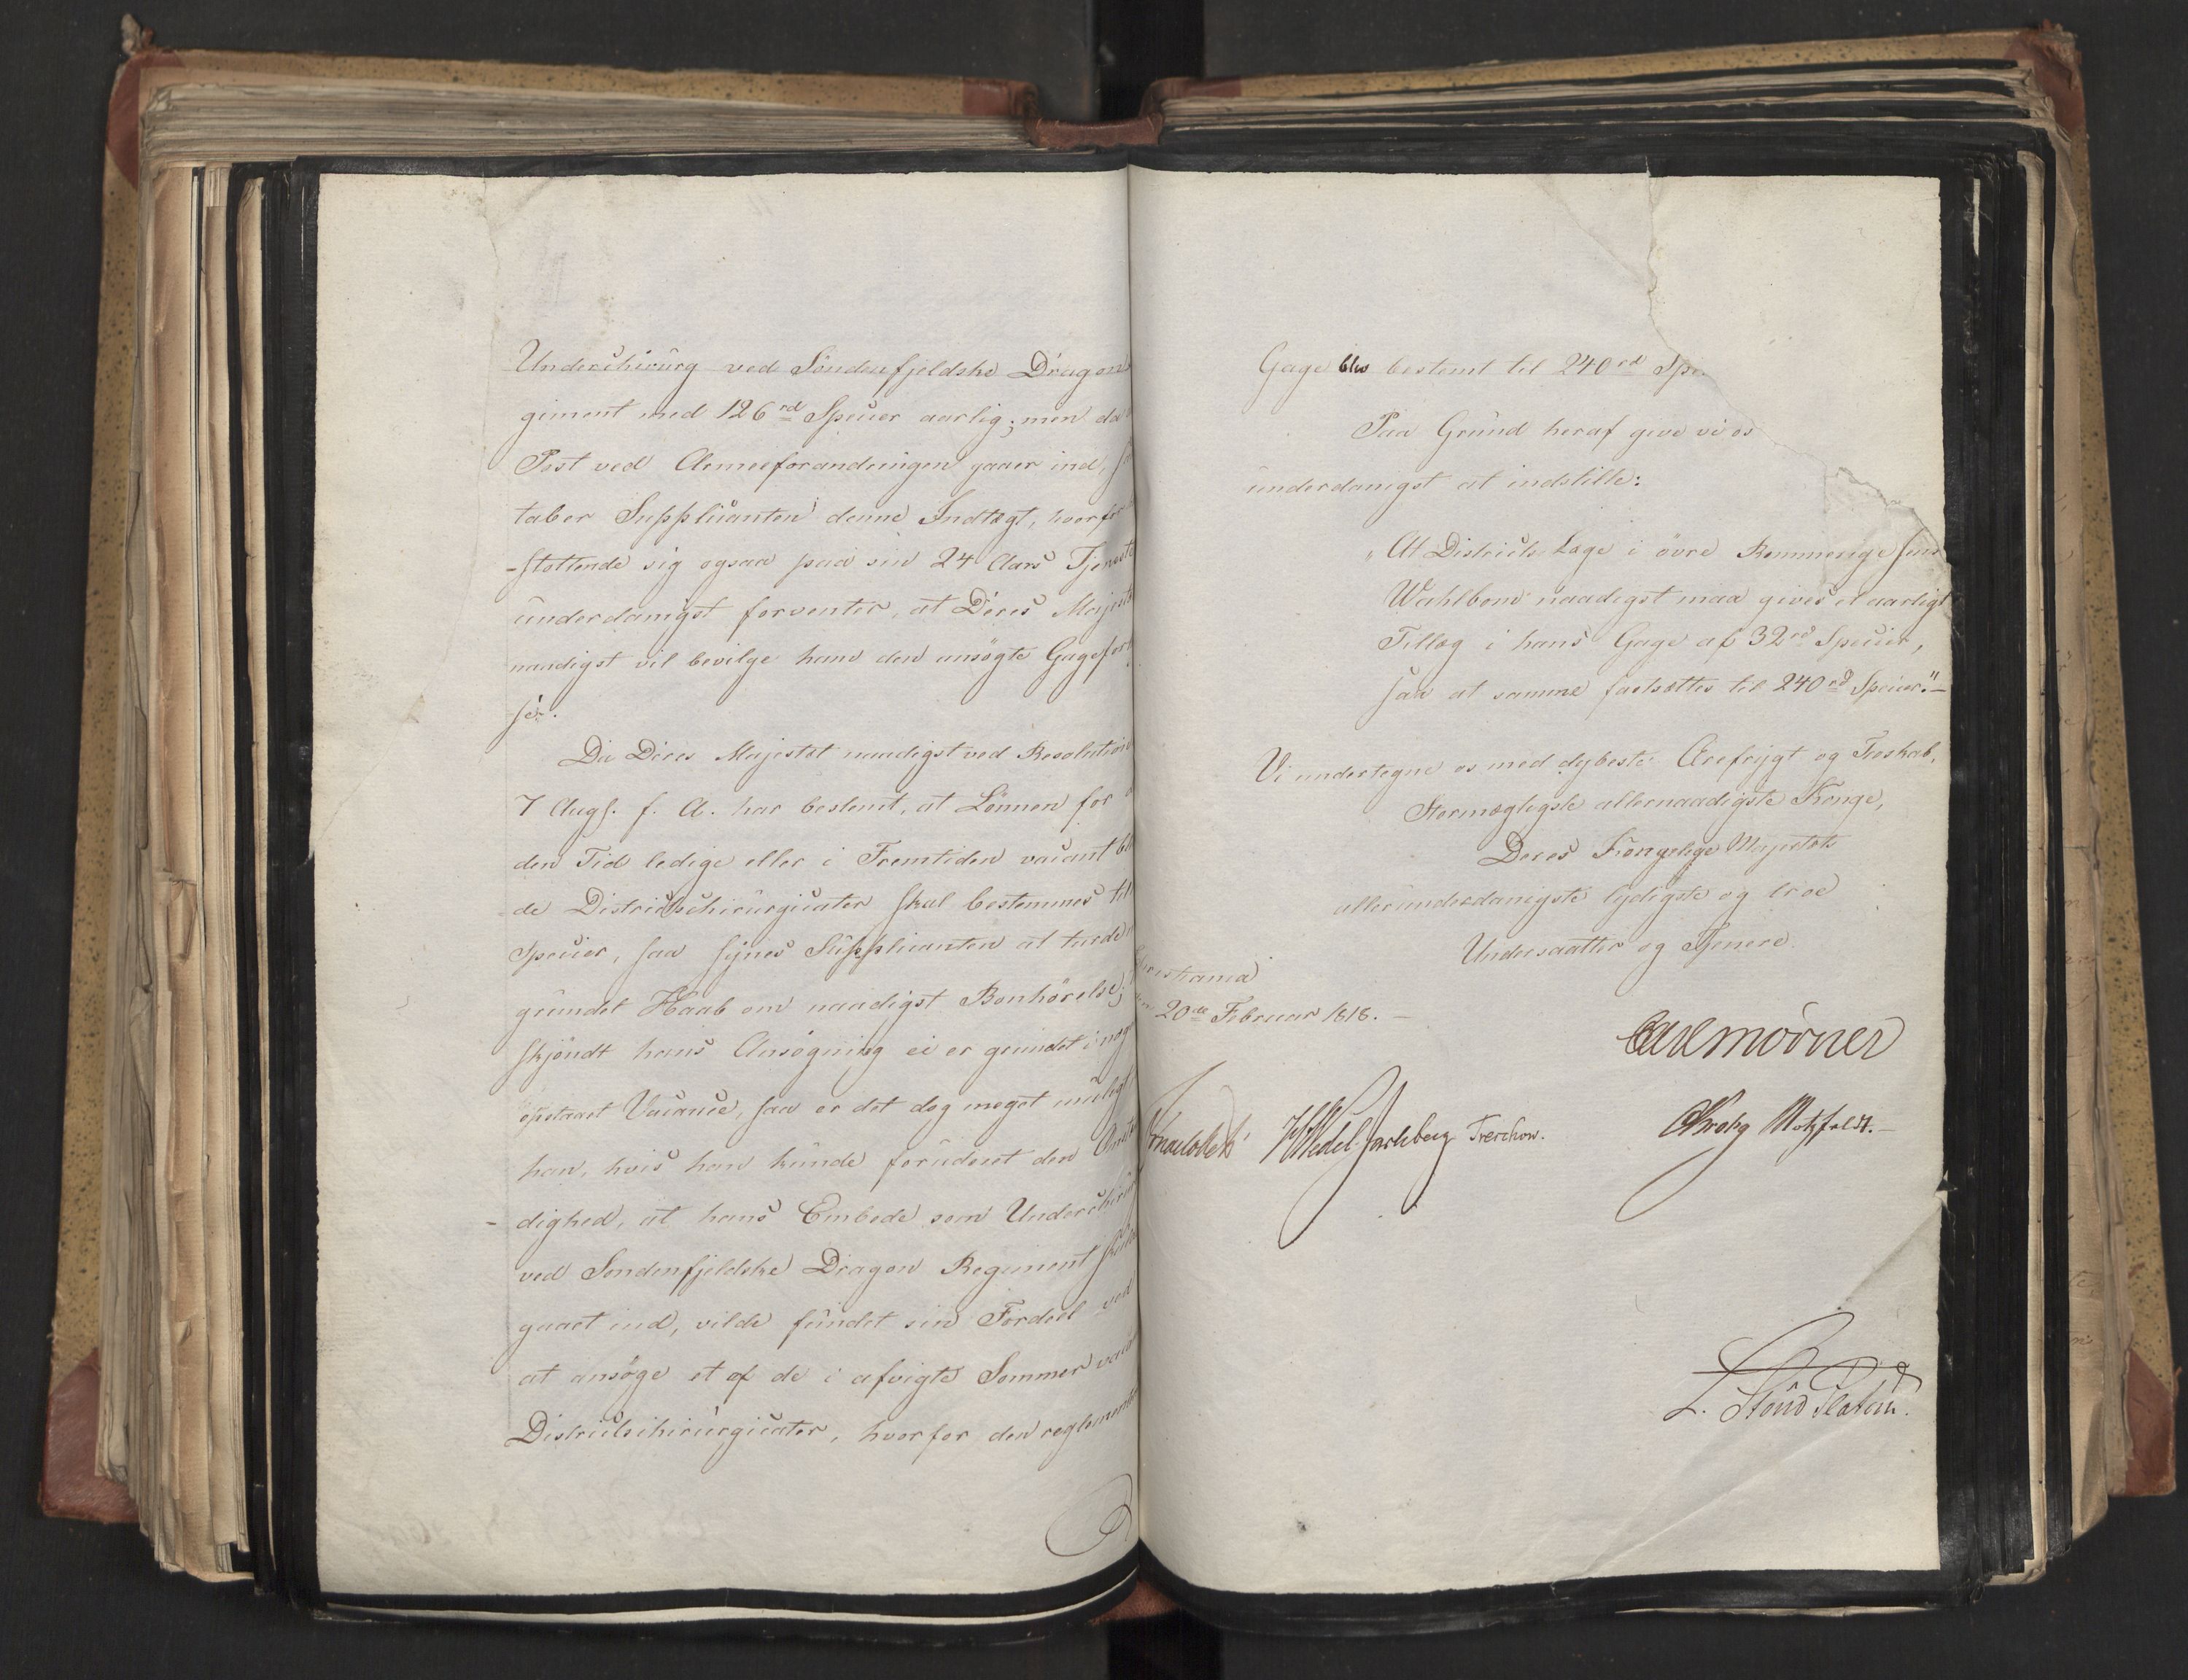 Underchirurg ved Søndenfjeldske Dragon
giment med 126rd Specier aarlig; men da
Post ved Armeeforandringen gaaer ind,
taber Supplicanten denne Indtægt, hvorfor
-støttende sig ogsaa paa sin 24 Aars Tjeneste
underdanigst forventer, at Deres Majestæ
naadigst vil bevilge ham den ansøgte Gagefor
se.
Da Deres Majestæt naadigst ved Resolution
7 Augs. f. A. har bestemt, at Lønnen for
den Tid ledige eller i Fremtiden vacant bl
de Districtschirurgicater skal bestemmes til
Specier, saa synes Supplicanten at turde
grundet Haab om naadigst Bønhørelse;
skjøndt hans Ansøgning ei er grundet i nog
opstaaet Vacance, saa er det dog meget muligt
han, hvis han kunde forudseet den Omstæn
-dighed, at hans Embede som Underchirurg
ved Søndenfjeldske Dragon Regiment skulde
gaaet ind, vilde fundet sin Fordeel ved
at ansøge et af de i afvigte Sommer vacan
Districtschirurgicater, hvorfor den reglemente
Gage blev bestemt til 240rd Spec.
Paa Grund heraf give vi os
underdanigst at indstille:
„At Districts Læge i øvre Rommerige Jens
Wahlbom naadigst maa gives et aarligt
Tillæg i hans Gage af 32rd Specier,
saa at samme fastsættes til 240rd Specier."-
Vi undertegne os med dybeste Ærefrygt og Troskab,
Stormægtigste allernaadigste Konge,
Deres Kongelige Majestæts
allerunderdanigste lydigste og troe
Undersaatter og Tjenere.
Christiania
den 20de Februar 1818. -
Carl Mörner
HWedel Jarlsberg Treschow. Motzfeldt.-
L. Stoud Platou.